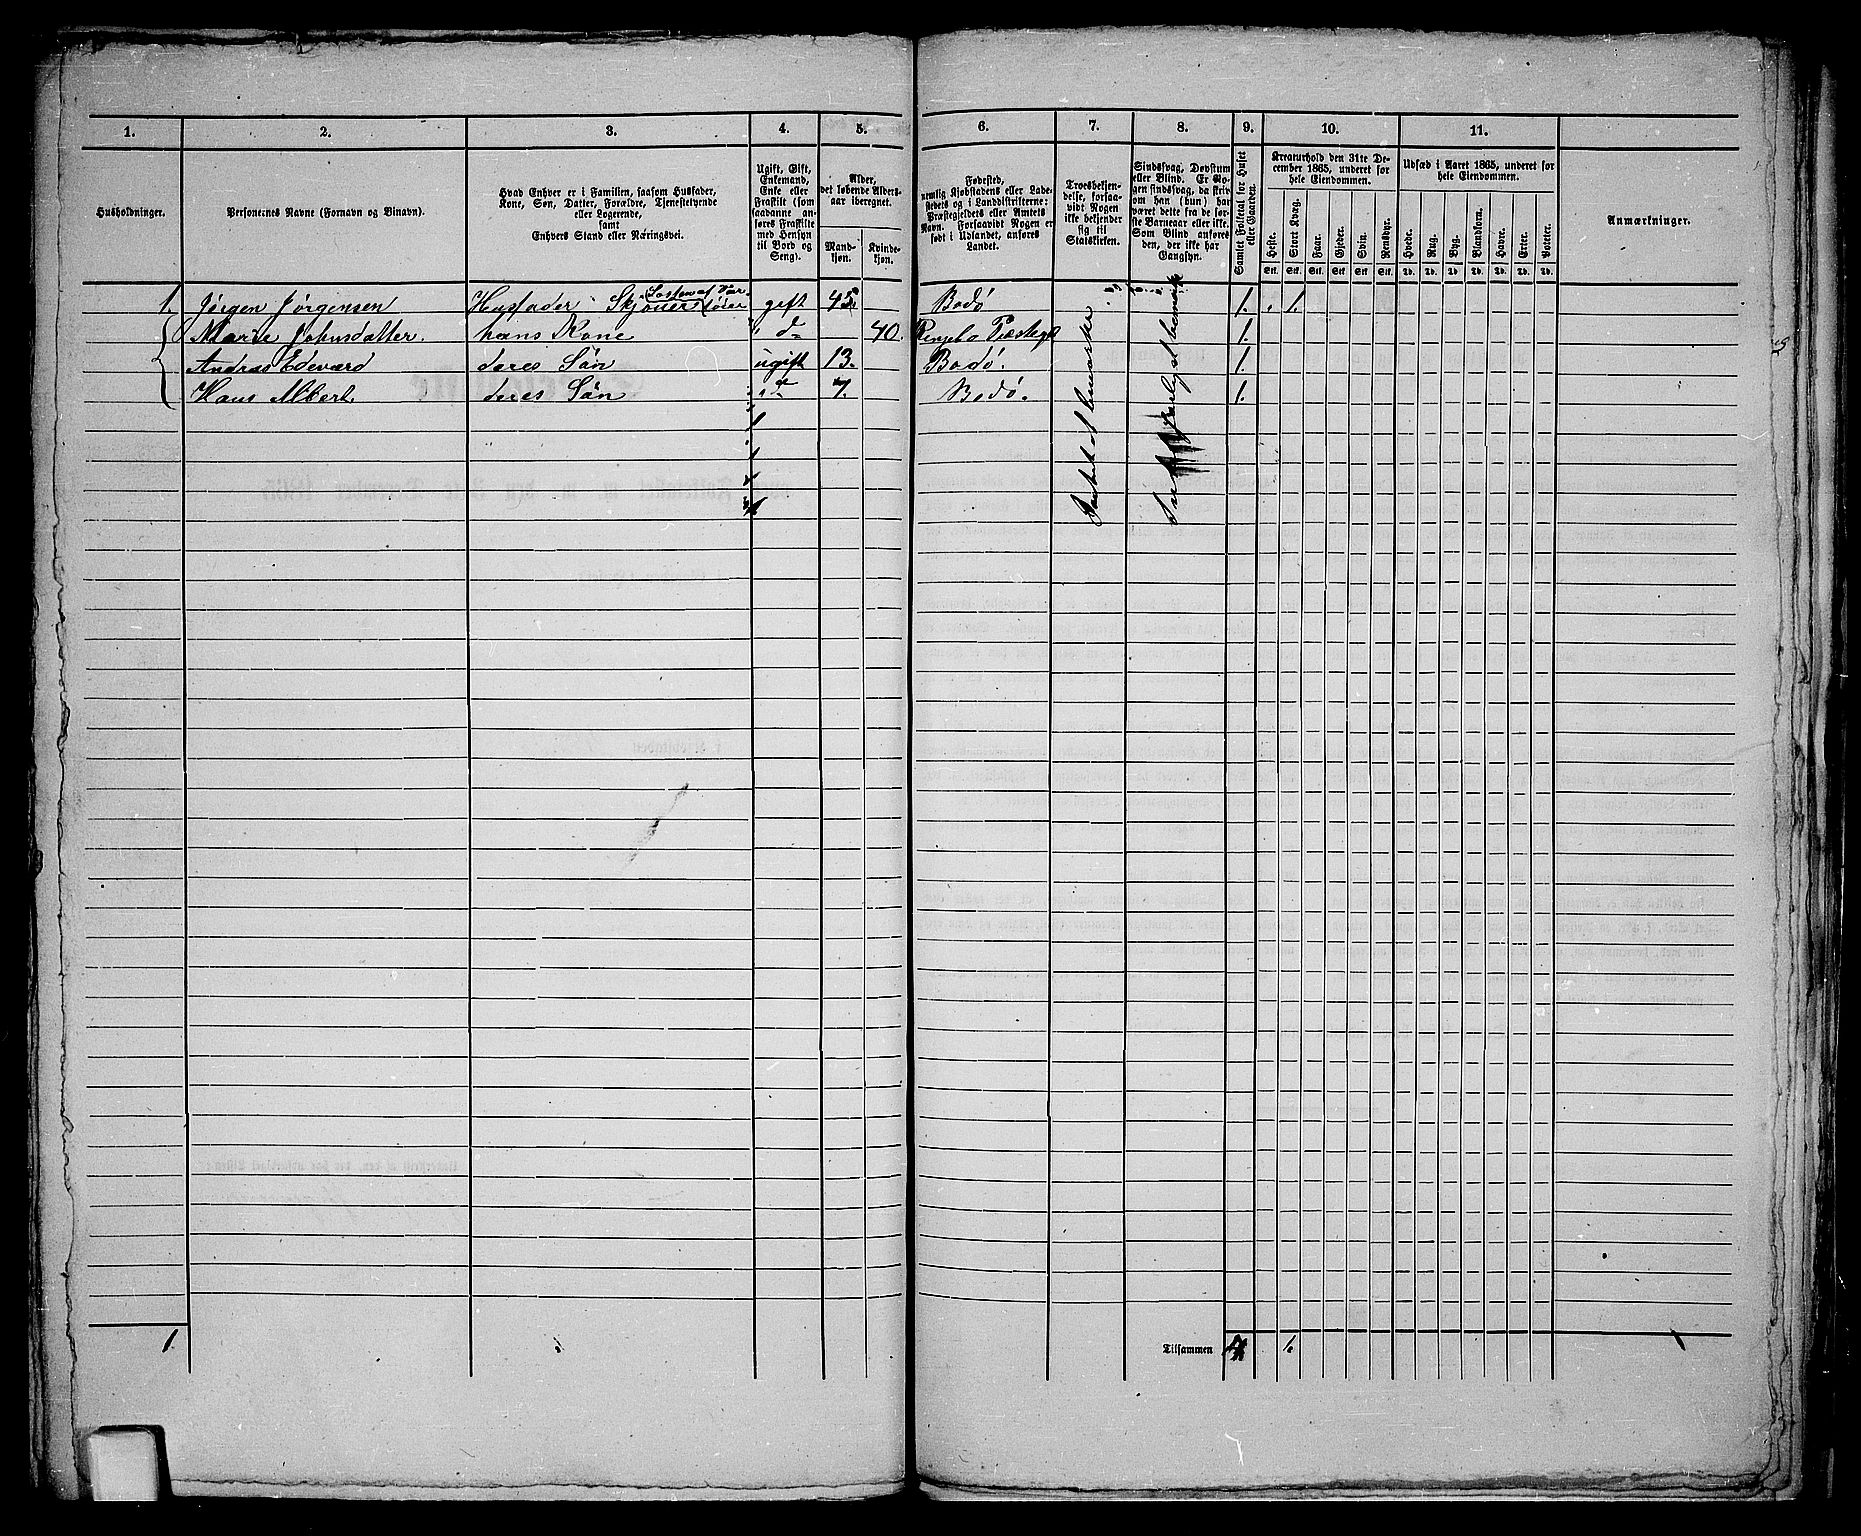 1. 2. 3. 4. 5. 6. 7. 8. 9. 10. 11.
Husholdninger.
Personernes Navne (Fornavn og Binavn).
Hvad Enhver er i Familien, saasom Husfader,
Kone, Søn, Datter, Forældre, Tjenestetyende
eller Logerende,
samt
Enhvers Stand eller Næringsvei.
Ugift, Gift,
Enkemand,
Enke eller
Fraskilt (som
saadanne an-
føres Fraskilte
med Hensyn
til Bord og
Seng).
Alder,
det løbende Alders-
aar iberegnet.
Mand-
kjøn.
Kvinde-
kjøn.
Fødested,
nemlig Kjøbstadens eller Lade-
stedets og i Landdistrikterne:
Præstegjeldets eller Amtets
Navn. Forsaavidt Nogen er
født i Udlandet, anføres
Landet.
Troesbekjen-
delse, forsaa-
vidt Nogen
ikke bekjender
sig til
Statskirken.
Sindssvag, Døvstum
eller Blind. Er No-
gen sindssvag, da skriv
om han (hun) har
været dette fra de før-
ste Barneaar eller ikke.
Som Blind anføres
den, der ikke har
Gangsyn.
Samlet Folketal for Huset
eller Gaarden.
Kreaturhold den 31te De-
cember 1865, underet for
hele Eiendommen.
Heste. Stort Kvæg. Faar. Gjeder. Svin. Rensdyr.
Stk. Stk. Stk. Stk. Stk. Stk.
Udsæd i Aaret 1865, underet for
hele Eiendommen.
Hvede. Rug. Byg. Blandkorn. Havre. Erter. Poteter.
Td. Td. Td. Td. Td. Td. Td.
Anmærkninger.
1. Jørgen Jørgensen Husfader gift 45 Bodø 1. 1.
Marie Johnsdatter. hans Kone " d 40. 1.
Andras Edevard deres Sön ugift 13. Bodö. 1.
Hans Albert deres Sön " 7. Bodø. 1.
1. Tilsammen 1.